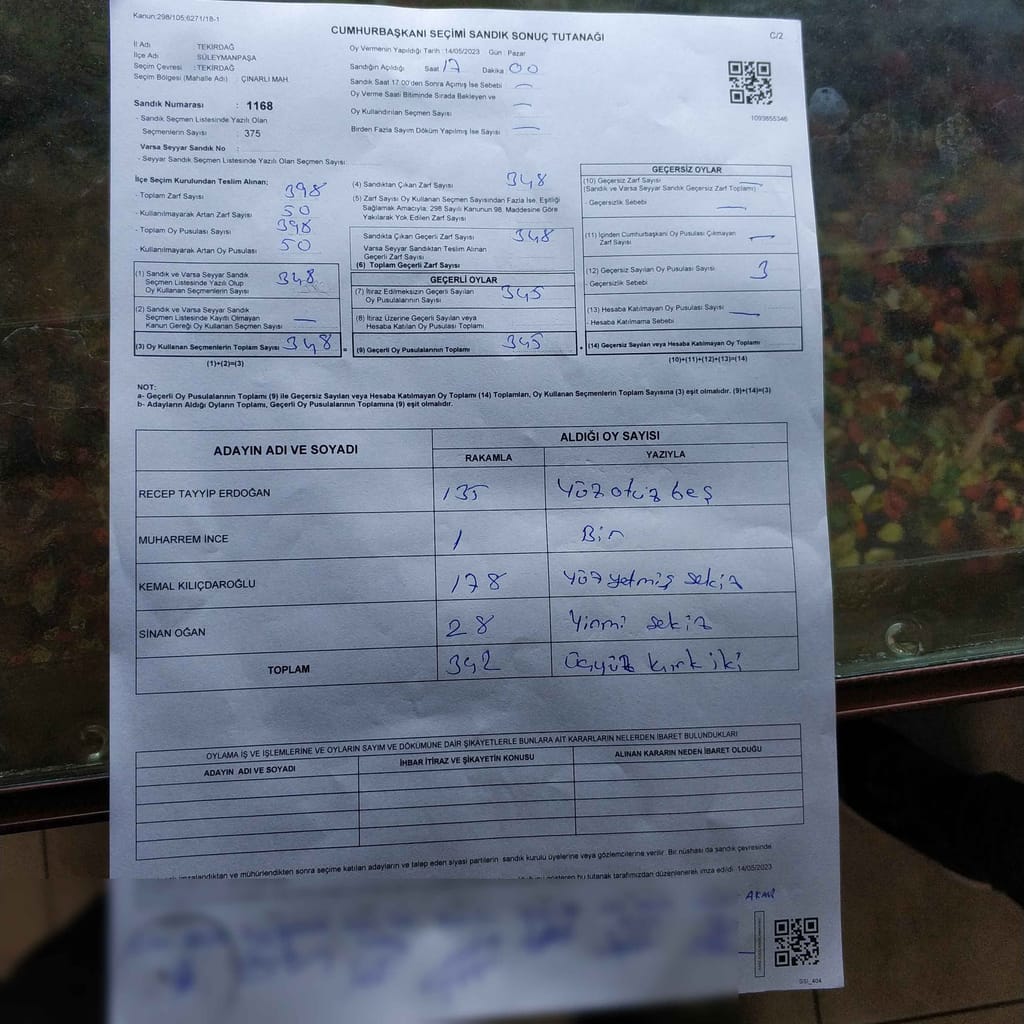 Kanun;298/105;6271/18-1
CUMHURBAŞKANI SEÇİMİ SANDIK SONUÇ TUTANAĞI
C/2
İl Adı TEKİRDAĞ
İlçe Adı SÜLEYMANPAŞA
Seçim Çevresi : TEKİRDAĞ
Seçim Bölgesi (Mahalle Adı) ÇINARLI MAH.
Sandık Numarası : 1168
- Sandık Seçmen Listesinde Yazılı Olan
Seçmenlerin Sayısı : 375
Varsa Seyyar Sandık No :
- Seyyar Sandık Seçmen Listesinde Yazılı Olan Seçmen Sayısı:
Oy Vermenin Yapıldığı Tarih : 14/05/2023 Gün : Pazar
Sandığın Açıldığı Saat 17 Dakika 00
Sandık Saat 17:00'den Sonra Açımış İse Sebebi —
Oy Verme Saati Bitiminde Sırada Bekleyen ve
Oy Kullandırılan Seçmen Sayısı —
Birden Fazla Sayım Döküm Yapılmış İse Sayısı —
1093855346
İlçe Seçim Kurulundan Teslim Alınan;
- Toplam Zarf Sayısı 398
- Kullanılmayarak Artan Zarf Sayısı 50
- Toplam Oy Pusulası Sayısı 398
- Kullanılmayarak Artan Oy Pusulası 50
(1) Sandık ve Varsa Seyyar Sandık
Seçmen Listesinde Yazılı Olup
Oy Kullanan Seçmenlerin Sayısı 348
(2) Sandık ve Varsa Seyyar Sandık
Seçmen Listesinde Kayıtlı Olmayan
Kanun Gereği Oy Kullanan Seçmen Sayısı —
(3) Oy Kullanan Seçmenlerin Toplam Sayısı 348
(1)+(2)=(3)
(4) Sandıktan Çıkan Zarf Sayısı 348
(5) Zarf Sayısı Oy Kullanan Seçmen Sayısından Fazla İse, Eşitliği
Sağlamak Amacıyla; 298 Sayılı Kanunun 98. Maddesine Göre
Yakılarak Yok Edilen Zarf Sayısı
Sandıkta Çıkan Geçerli Zarf Sayısı 348
Varsa Seyyar Sandıktan Teslim Alınan
Geçerli Zarf Sayısı
(6) Toplam Geçerli Zarf Sayısı
GEÇERLİ OYLAR
(7) İtiraz Edilmeksizin Geçerli Sayılan
Oy Pusulalarının Sayısı 345
(8) İtiraz Üzerine Geçerli Sayılan veya
Hesaba Katılan Oy Pusulası Toplamı
= (9) Geçerli Oy Pusulalarının Toplamı 345
GEÇERSİZ OYLAR
(10) Geçersiz Zarf Sayısı —
(Sandık ve Varsa Seyyar Sandık Geçersiz Zarf Toplamı)
- Geçersizlik Sebebi —
(11) İçinden Cumhurbaşkanı Oy Pusulası Çıkmayan
Zarf Sayısı —
(12) Geçersiz Sayılan Oy Pusulası Sayısı 3
- Geçersizlik Sebebi
(13) Hesaba Katılmayan Oy Pusulası Sayısı —
- Hesaba Katılmama Sebebi
+ (14) Geçersiz Sayılan veya Hesaba Katılmayan Oy Toplamı
(10)+(11)+(12)+(13)=(14)
NOT:
a- Geçerli Oy Pusulalarının Toplamı (9) ile Geçersiz Sayılan veya Hesaba Katılmayan Oy Toplamı (14) Toplamları, Oy Kullanan Seçmenlerin Toplam Sayısına (3) eşit olmalıdır. (9)+(14)=(3)
b- Adayların Aldığı Oyların Toplamı, Geçerli Oy Pusulalarının Toplamına (9) eşit olmalıdır.
ADAYIN ADI VE SOYADI
ALDIĞI OY SAYISI
RAKAMLA YAZIYLA
RECEP TAYYİP ERDOĞAN 135 Yüz otuz beş
MUHARREM İNCE 1 Bir
KEMAL KILIÇDAROĞLU 178 Yüz yetmiş sekiz
SİNAN OĞAN 28 Yirmi sekiz
TOPLAM 342 Üçyüz kırk iki
OYLAMA İŞ VE İŞLEMLERİNE VE OYLARIN SAYIM VE DÖKÜMÜNE DAİR ŞİKAYETLERLE BUNLARA AİT KARARLARIN NELERDEN İBARET BULUNDUKLARI
ADAYIN ADI VE SOYADI İHBAR İTİRAZ VE ŞİKAYETİN KONUSU ALINAN KARARIN NEDEN İBARET OLDUĞU
imzalandıktan ve mühürlendikten sonra seçime katılan adayların ve talep eden siyasi partilerin sandık kurulu üyelerine veya gözlemcilerine verilir. Bir nüshası da sandık çevresinde
gösteren bu tutanak tarafımızdan düzenlenerek imza edildi. 14/05/2023
SSİ_404